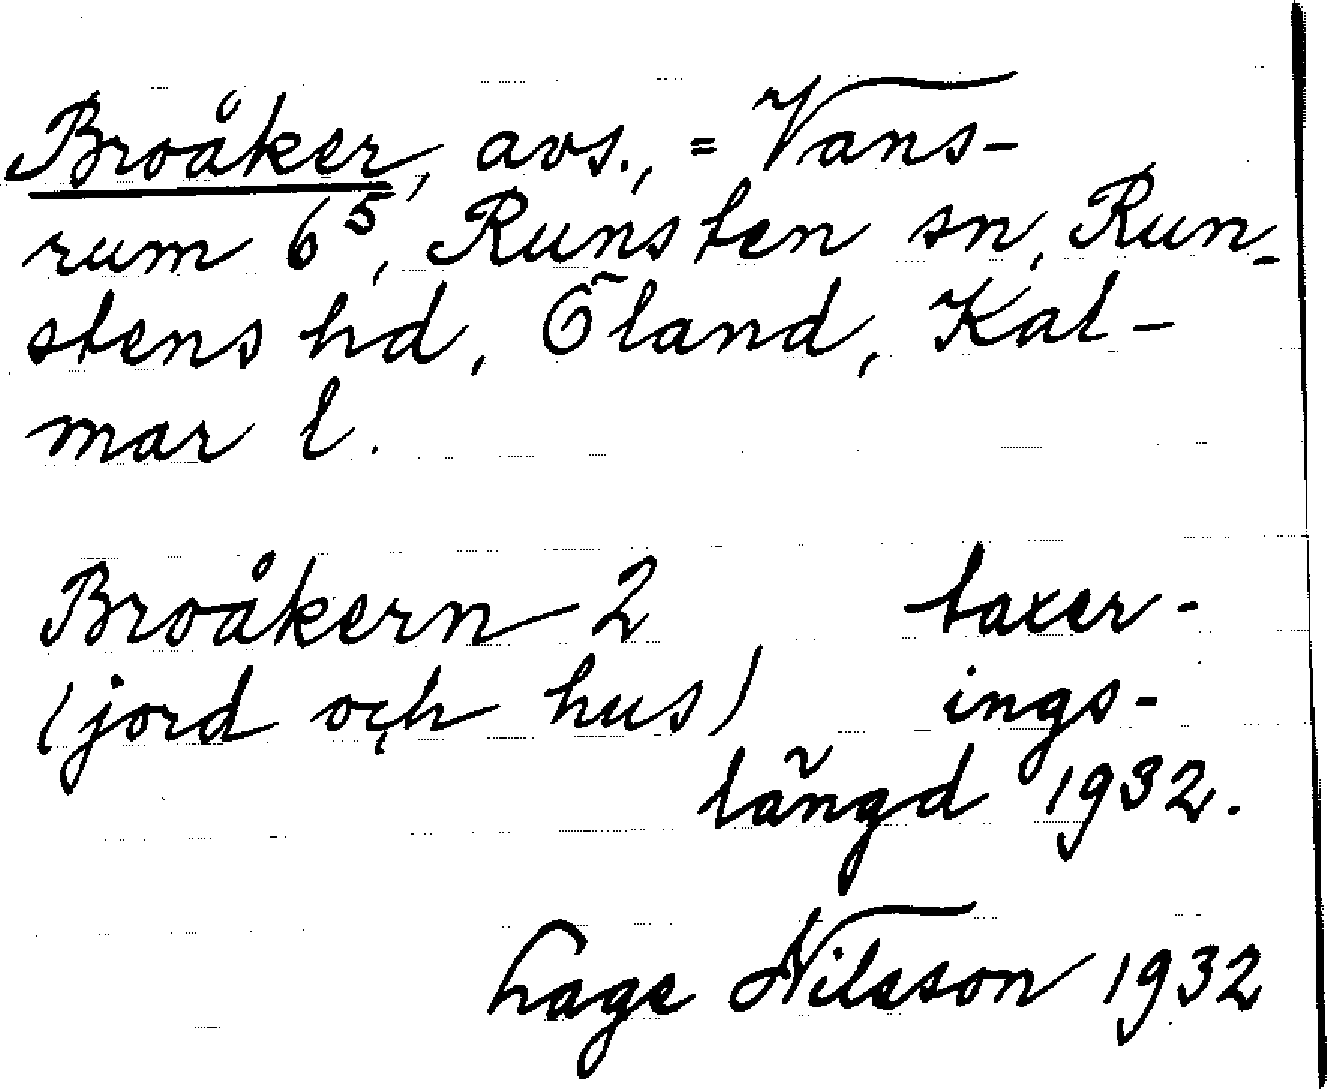 Broåker, avs., = Vans-
rum 6⁵, Runsten sn, Run-
stens hd, Öland, Kal-
mar l.
Broåkern 2 taxer-
(jord och hus) ings-
längd 1932.
Lage Nilsson 1932